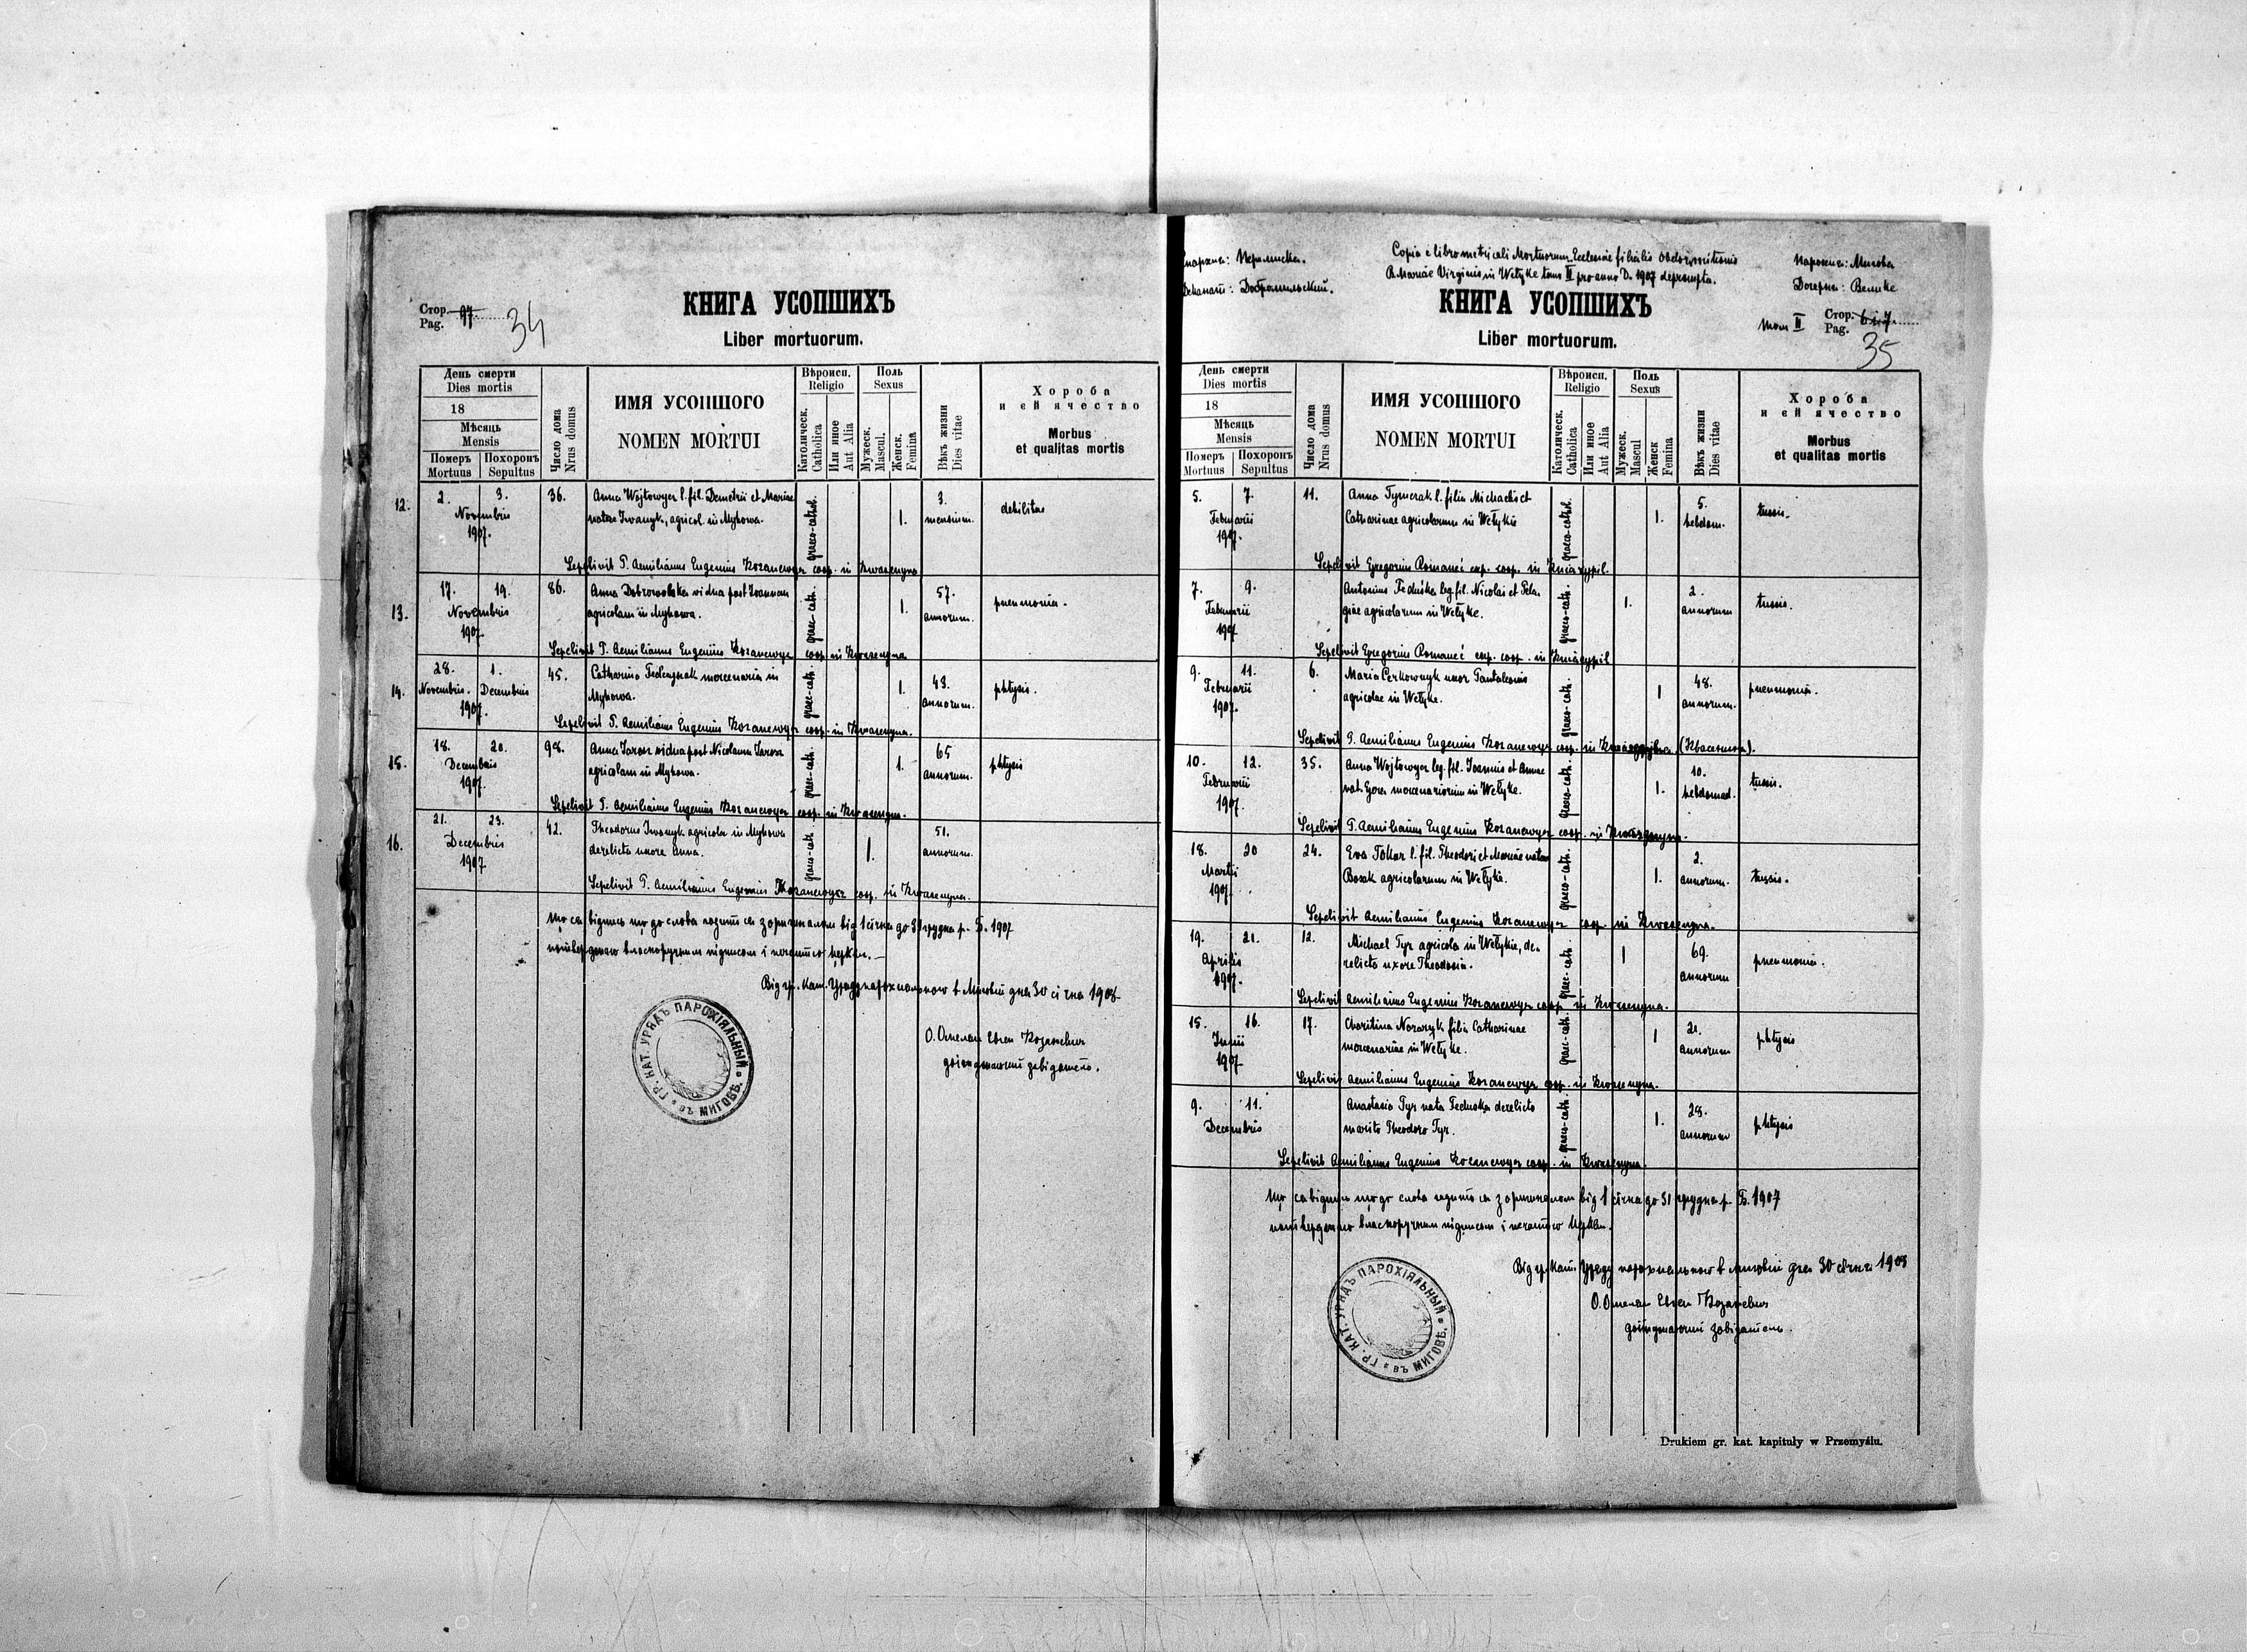 Стор. 97
Pag.
34
КНИГА УСОПШИХЪ
Liber mortuorum.
День смерти
Dies mortis
18
Мѣсяць
Mensis
Померъ
Mortuus
Похоронъ
Sepultus
Число дома
Nrus domus
ИМЯ УСОПШОГО
NOMEN MORTUI
Вѣроисп.
Religio
Католическ.
Catholica
Или иное
Aut Alia
Поль
Sexus
Мужеск.
Mascul.
Женск.
Femina
Вѣкъ жизни
Dies vitae
Хороба
и ей ячество
Morbus
et qualitas mortis
12. 2. 3. 36. Anna Wojtowycz l. fil. Demetrii et Mariae graeco-cathol. 1. 3. debilitas
Novembris natae Iwanyk, agricol. in Myhowa. mensium.
1907.
Sepelivit P. Aemilianus Eugenius Kozanewycz coop. in Kwasenyna
13. 17. 19. 86. Anna Dobrowolska vidua post Joannem graec-cath. 1. 57. pneumonia.
Novembris agricolam in Myhowa. annorum.
1907.
Sepelivit P. Aemilianus Eugenius Kozanewycz coop. in Kwasenyna
14. 28. 1. 45. Catharina Fedczyszak mercenaria in graec-cath. 1. 43. phtysis.
Novembris. Decembris Myhowa. annorum.
1907.
Sepelivit P. Aemilianus Eugenius Kozanewycz coop. in Kwasenyna.
15. 18. 20. 98. Anna Jarosz vidua post Nicolaum Jarosz graec-cath. 1. 65 phtysis
Decembris agricolam in Myhowa. annorum.
1907.
Sepelivit P. Aemilianus Eugenius Kozanewycz coop. in Kwasenyna.
16. 21. 23. 42. Theodorus Iwanyk agricola in Myhowa graeco-cath. 1. 51.
Decembris derelicta uxore Anna. annorum.
1907
Sepelivit P. Aemilianus Eugenius Kozanewycz coop. in Kwasenyna.
що до слова годить ся з оригиналом від 1 січня до 31 грудня р. Б. 1907
власноручним підписом і печатию церкви.
Від гр. кат. Уряду парохиального в Мигові дня 30 січня 1908
О. Омелян Евген Козаневич
доїзджаючий завідатель.
ГР. КАТ. УРЯДЪ ПАРОХІЯЛЬНЫЙ въ МИГОВѢ.
Епархия: Перемиска.
Деканат: Добромильский.
Copia e libro metricali Mortuorum Ecclesiae filialis Obdormitionis
B. Mariae Virginis in Wełyke tom II pro anno D. 1907 deprompta.
Парохия: Мигова
Дочерна: Велике
КНИГА УСОПШИХЪ
Liber mortuorum.
том II Стор. 6 i 7
Pag.
35
День смерти
Dies mortis
18
Мѣсяць
Mensis
Померъ
Mortuus
Похоронъ
Sepultus
Число дома
Nrus domus
ИМЯ УСОПШОГО
NOMEN MORTUI
Вѣроисп.
Religio
Католическ.
Catholica
Или иное
Aut Alia
Поль
Sexus
Мужеск.
Mascul
Женск
Femina
Вѣкъ жизни
Dies vitae
Хороба
и ей ячество
Morbus
et qualitas mortis
5. 7. 11. Anna Tymczak l. filia Michaelis et graeco-cathol. 1. 5. tussis.
Februarii Catharinae agricolarum in Wełykie hebdom.
1907.
Sepelivit Gregorius Romaneć exp. coop. in Kniazypil.
7. 9. Antonius Feduśka leg. fil. Nicolai et Pela- graeco-cath. 1. 2. tussis.
Februarii giae agricolarum in Wełyke. annorum
1907
Sepelivit Gregorius Romaneć exp. coop. in Kniazypil
9. 11. 6. Maria Cerkownyk uxor Pantaleonis graeco-cath. 1 48. pneumonia.
Februarii agricolae in Wełyke. annorum.
1907.
Sepelivit P. Aemilianus Eugenius Kozanewycz coop. in (Квасенина).
10. 12. 35. Anna Wojtowycz leg. fil. Joannis et Annae graeco-cath. 1. 10. tussis.
Februarii nat. Gocz mercenariorum in Wełyke. hebdomad.
1907.
Sepelivit P. Aemilianus Eugenius Kozanewycz coop. in Kwasenyna.
18. 20 24. Eva Tokar l. fil. Theodori et Mariae natae graeco-cath. 1. 2. tussis.
Martii Bosak agricolarum in Wełyke. annorum.
1907.
Sepelivit Aemilianus Eugenius Kozanewycz coop. in Kwasenyna.
19. 21. 12. Michael Tyz agricola in Wełykie, de- graec-cath. 1 69. pneumonia.
Aprilis relicta uxore Theodosia. annorum
1907.
Sepelivit Aemilianus Eugenius Kozanewycz coop. in Kwasenyna.
15. 16. 17. Charitina Nazaryk filia Catharinae graec-cath. 1 21. phtysis
Junii mercenariae in Wełyke. annorum
1907
Sepelivit Aemilianus Eugenius Kozanewycz coop. in Kwasenyna.
9. 11. Anastasia Tyz nata Feduśka derelicto graeco-cath. 1. 28. phtysis
Decembris marito Theodoro Tyz. annorum
Sepelivit Aemilianus Eugenius Kozanewycz coop. in Kwasenyna.
що до слова годить ся з оригиналом від 1 січня до 31 грудня р. Б. 1907
власноручним підписом і печатию церкви.
Від гр. кат. Уряду парохиального в Мигові дня 30 січня 1908
О. Омелян Евген Козаневич
доїзджаючий завідатель.
ГР. КАТ. УРЯДЪ ПАРОХІЯЛЬНЫЙ въ МИГОВѢ.
Drukiem gr. kat. kapituły w Przemyślu.